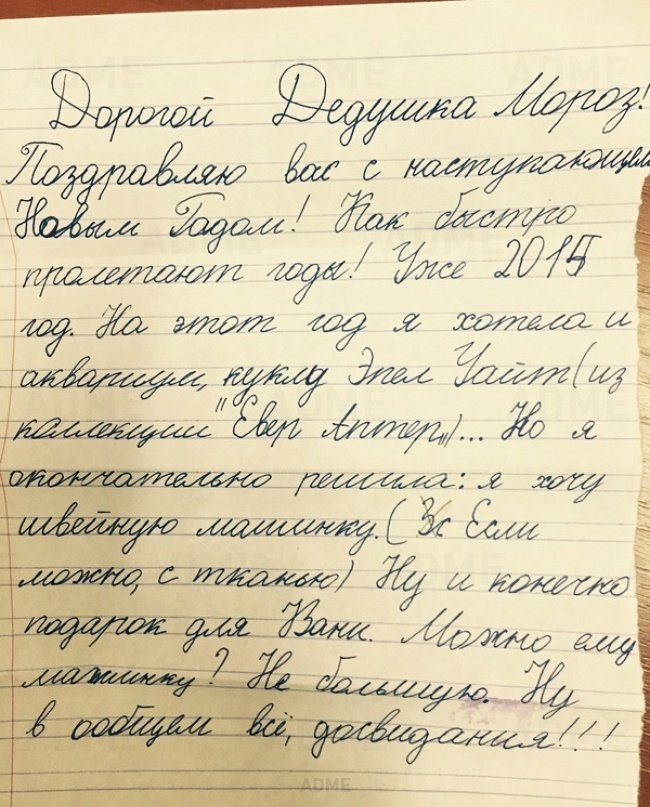 Дорогой Дедушка Мороз!
Поздравляю вас с наступающем
Новым Гадом! Как быстро
пролетают годы! Уже 2015
год. На этот год я хотела и
аквариум, куклу Эпел Уайт (из
коллекции "Евер Аптер„)... Но я
окончательно решила: я хочу
швейную машинку. (Если
можно, с тканью) Ну и конечно
подарок для Вани. Можно ему
машинку? Не большую. Ну
в ообщем всё, досвидания!!!
ADME